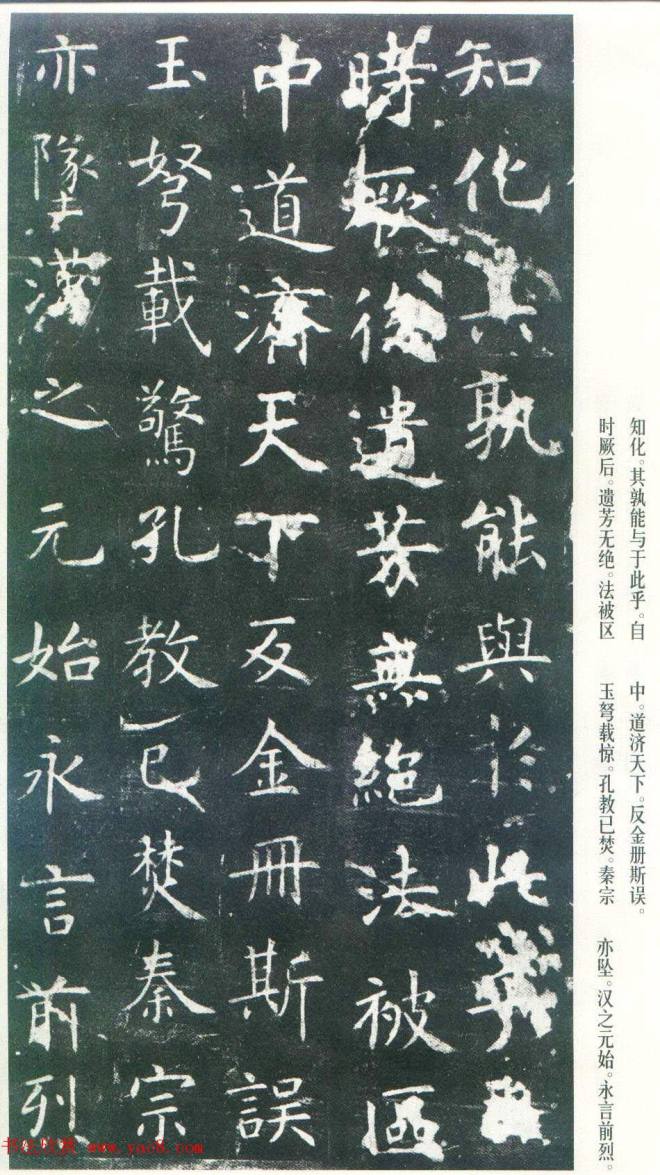 知化其孰能與於此乎自
時厥後遺芳無絕法被區
中道濟天下反金冊斯誤
玉弩載驚孔教已焚秦宗
亦墜漢之元始永言前列
知化。其孰能与于此乎。自
时厥后。遗芳无绝。法被区
中。道济天下。反金册斯误。
玉弩载惊。孔教已焚。秦宗
亦坠。汉之元始。永言前烈。
书法欣赏 www.yac8.com